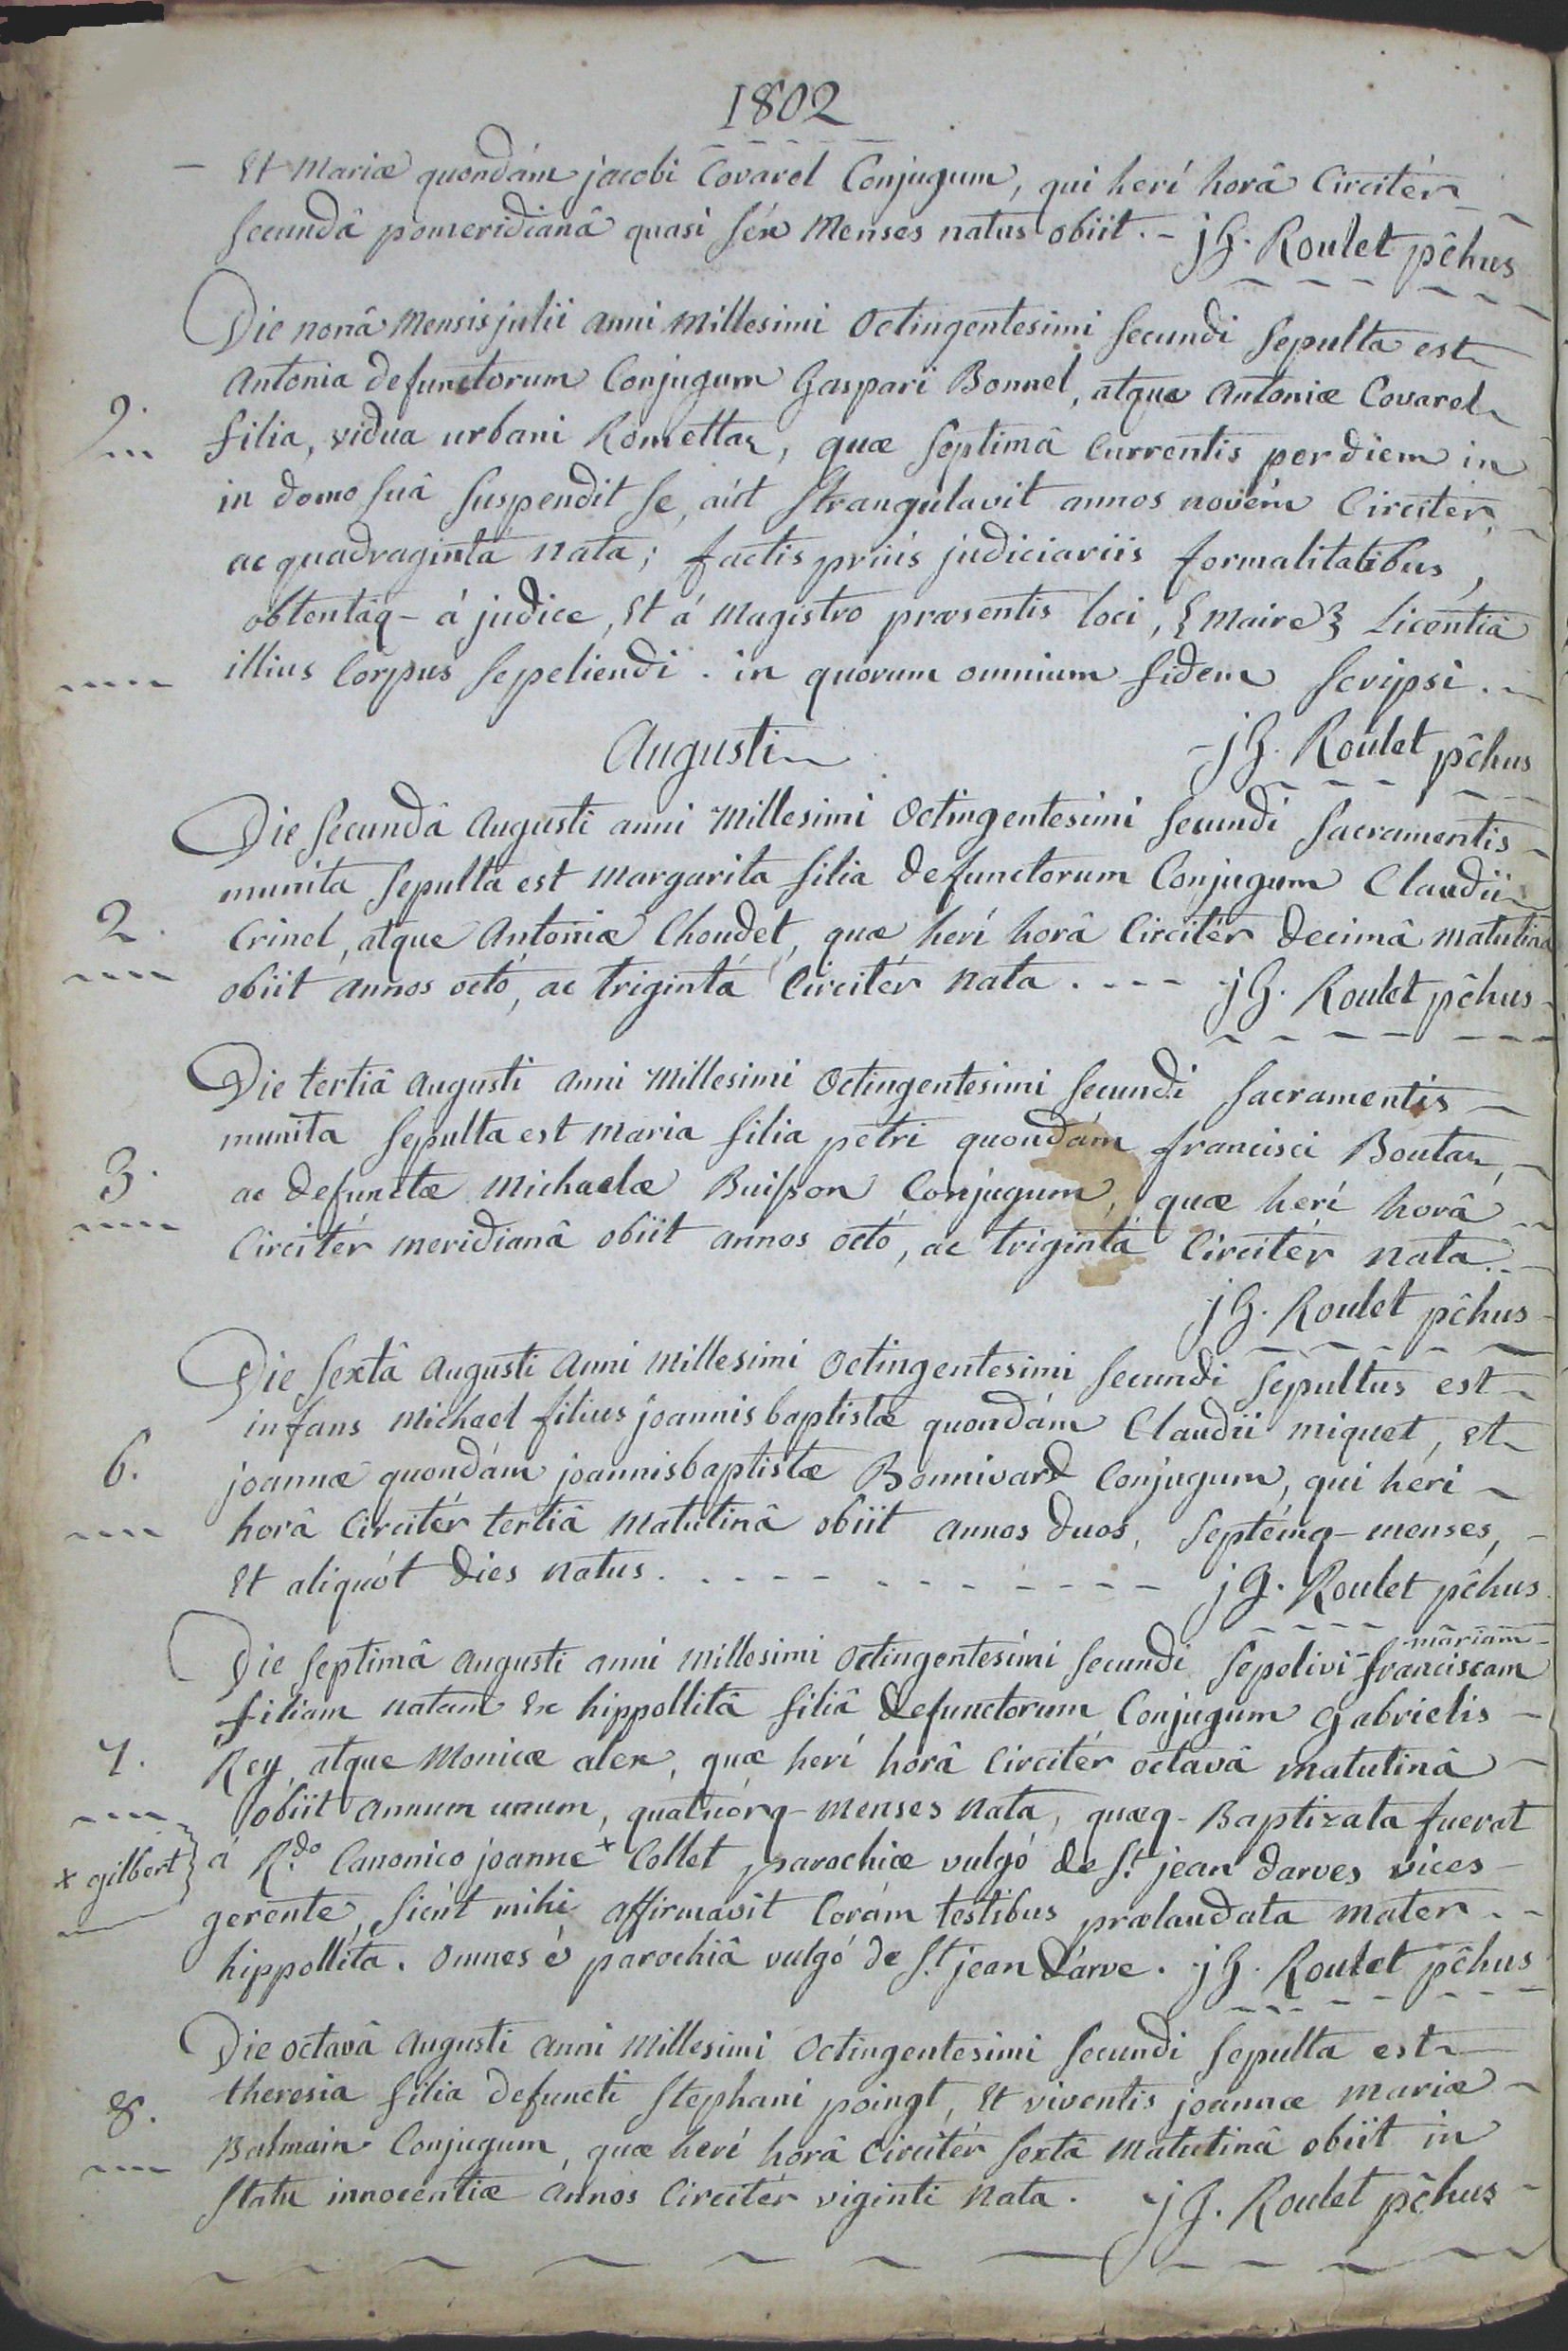 1802
- Et Mariæ quondám jacobi Covarel Conjugum, qui herí horâ Circitér
secundâ pomeridianâ quasi séx Menses natus obiit. - jG. Roulet pôchus
Die nonâ Mensis julii anni Millesimi Octingentesimi secundi sepulta est
Antonia defunctorum Conjugum Gaspari Bonnel, atque Antoniæ Covarel
9. filia, vidua urbani Romettaz, quæ septimâ Currentis per diem in
in domo suâ suspendit se, aút strangulavit annos novém Circitér,
ac quadragintá nata; factis priús judiciariis formalitatibus,
obtentáq- á judice, Et á Magistro præsentis loci, {Maire} Licentiâ
illius Corpus sepeliendi. in quorum omnium fidem scripsi.
Augusti - jG. Roulet pôchus
Die secundâ Augusti anni Millesimi Octingentesimi secundi sacramentis
munita sepulta est Margarita filia defunctorum Conjugum Claudii
2. Crinel, atque Antoniæ Choudet, quæ herí horâ Circitér decimâ matutinâ
obiit annos octó, ac trigintá Circitér nata. - - - jG. Roulet pôchus
Die tertiâ Augusti Anni Millesimi Octingentesimi secundi sacramentis
munita sepulta est Maria filia petri quondám francisci Boutaz,
3. ac defunctæ Michaelæ Buisson Conjugum, quæ herí horâ
Circitér meridianâ obiit annos octó, ac trigintá Circitér nata.
jG. Roulet pôchus
Die sextâ Augusti Anni Millesimi Octingentesimi secundi sepultus est
infans Michael filius joannis baptistæ quondám Claudii miquet, Et
6. joannæ quondám joannisbaptistæ Bonnivard Conjugum, qui herí
horâ Circitér tertiâ Matutinâ obiit annos duos, septémq- menses,
Et aliquót dies natus. - - - - jG. Roulet pôchus
mariam
Die septimâ Augusti anni Millesimi Octingentesimi secundi sepelivi franciscam
filiam natam Ex hippollitâ filiâ defunctorum Conjugum Gabrielis
7. Rey, atque Monicæ alex, quæ herí horâ Circitér octavâ matutinâ
obiit annum unum, quatuórq- menses nata, quæq- Baptizata fuerat
x gilbert á R.do Canonico joanne x Collet parochiæ vulgó de St. jean darves vices
gerente, sicút mihi affirmavit Corám testibus prælaudata mater
hippollita. Omnes é parochiâ vulgó de St. jean d'arve. jG. Roulet pôchus
Die octavâ Augusti Anni Millesimi Octingentesimi secundi sepulta est
theresia filia defuncti Stephani poingt, Et viventis joannæ Mariæ
8. Balmain Conjugum, quæ herí horâ Circitér sextâ Matutinâ obiit in
statu innocentiæ annos Circitér viginti nata. jG. Roulet pôchus